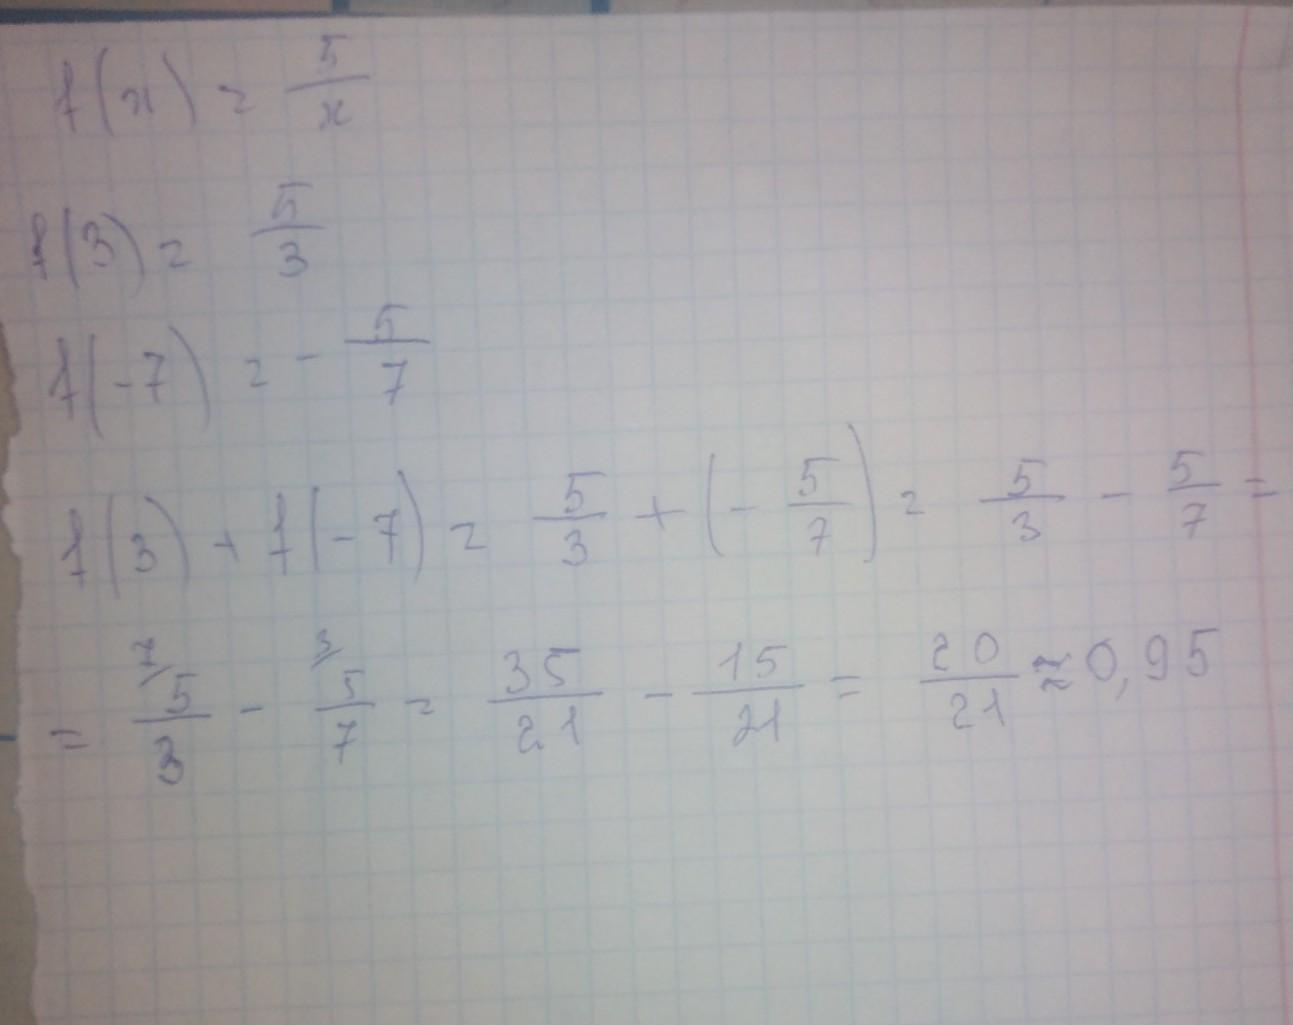 f(x) = 5/x
f(3) = 5/3
f(-7) = - 5/7
f(3) + f(-7) = 5/3 + (- 5/7) = 5/3 - 5/7 =
= 7/ 5/3 - 3/ 5/7 = 35/21 - 15/21 = 20/21 ≈ 0,95